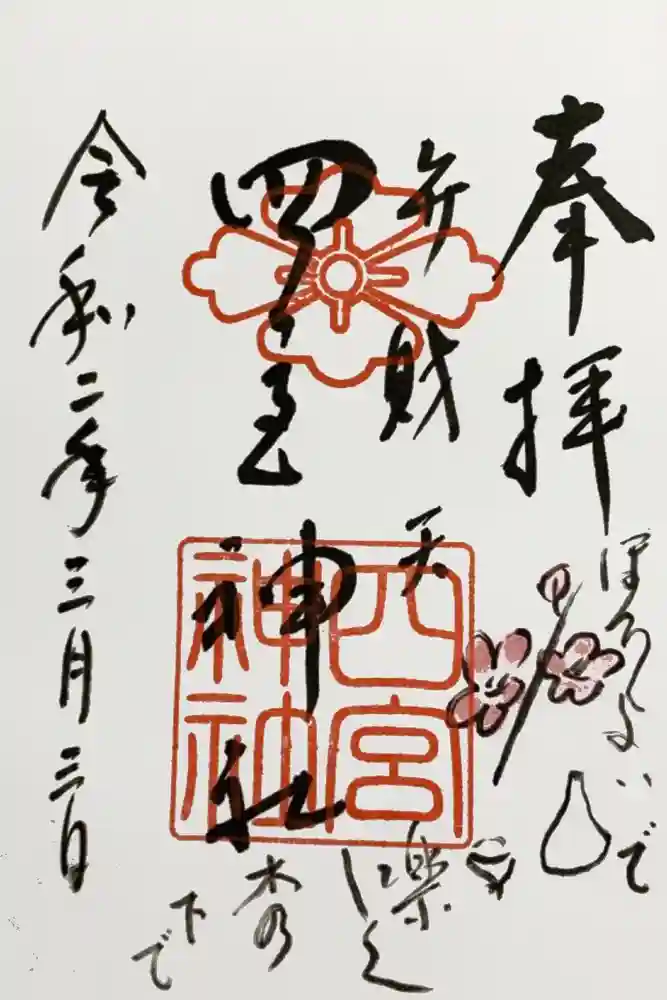 奉拝
ほろよいで
弁財天
楽しく
四宮神社
四宮神社
木の
下で
令和二年三月三日